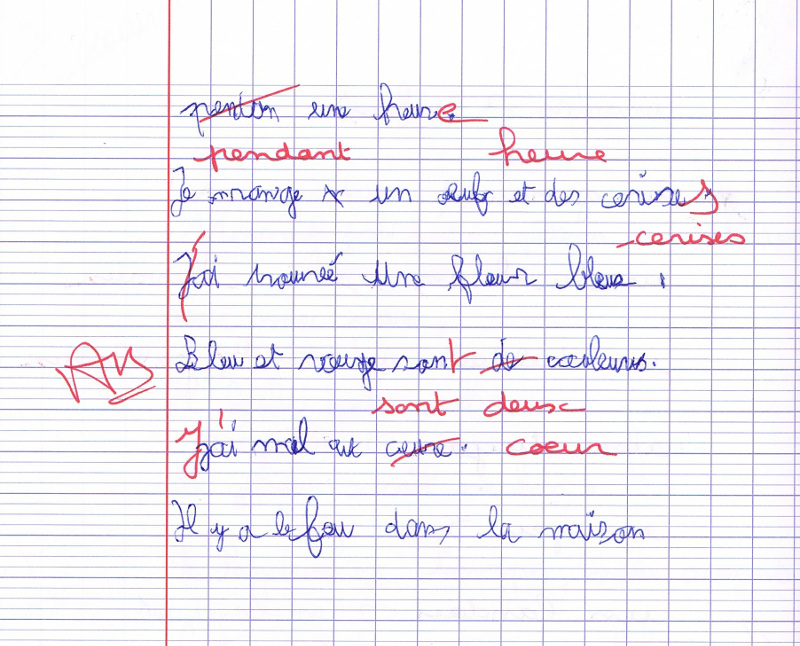 pention une heure
pendant heure
Je mange un oeufs et des cerises
cerises
J'ai trouveé une fleur bleue.
AB
Bleu et rouge sont de couleurs.
sont deux
J'ai mal au coeur
Il y a le feu dans la maison